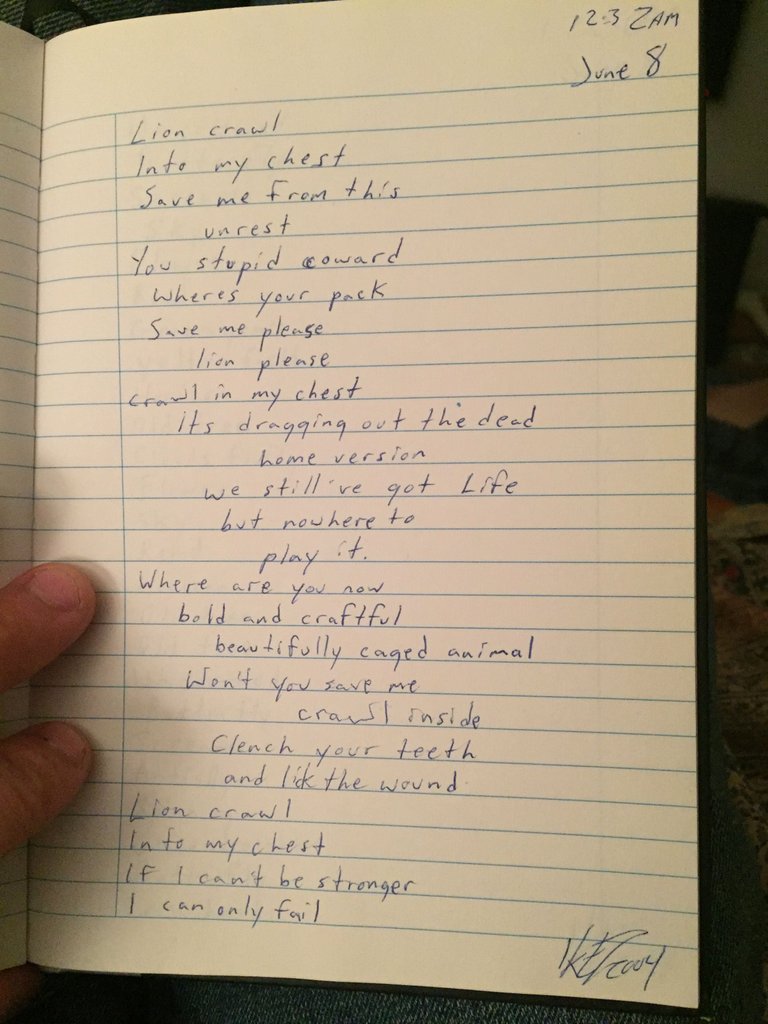 12:32AM
June 8
Lion crawl
Into my chest
Save me from this
unrest
You stupid coward
Wheres your pack
Save me please
lion please
crawl in my chest
Its dragging out the dead
home version
we still've got Life
but nowhere to
play it.
Where are you now
bold and craftful
beautifully caged animal
Won't you save me
crawl inside
Clench your teeth
and lik the wound
Lion crawl
Into my chest
If I can't be stronger
I can only fail
2004